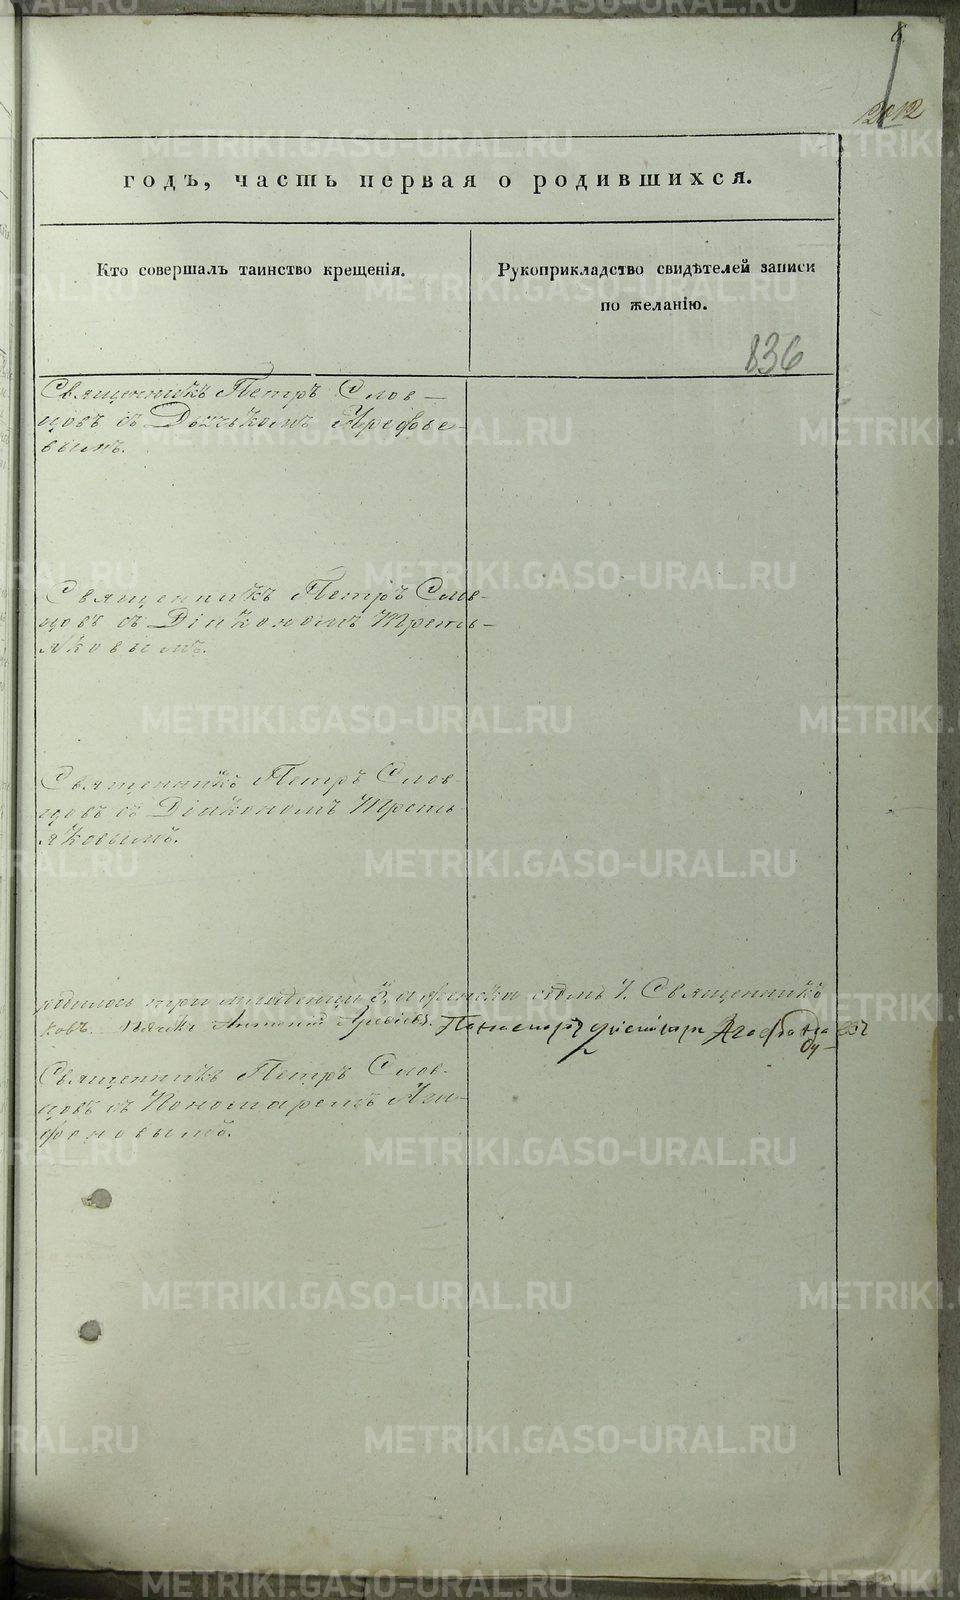 6
12
12
годъ, часть первая о родившихся.
Кто совершалъ таинство крещенія.
Рукоприкладство свидѣтелей записи
по желанію.
836
Священникъ Петръ Слов-
цовъ съ Дьячкомъ Арефье-
вымъ.
Священникъ Петръ Слов-
цовъ съ Діякономъ Треть-
яковымъ.
Священникъ Петръ Слов-
цовъ съ Діякономъ Треть-
яковымъ.
три 3, а женска 7. Священникъ
ковъ. Антоній Арефьевъ. Пономарь
Священникъ Петръ Слов-
цовъ съ Пономаремъ Ага-
фоновымъ.
METRIKI.GASO-URAL.RU